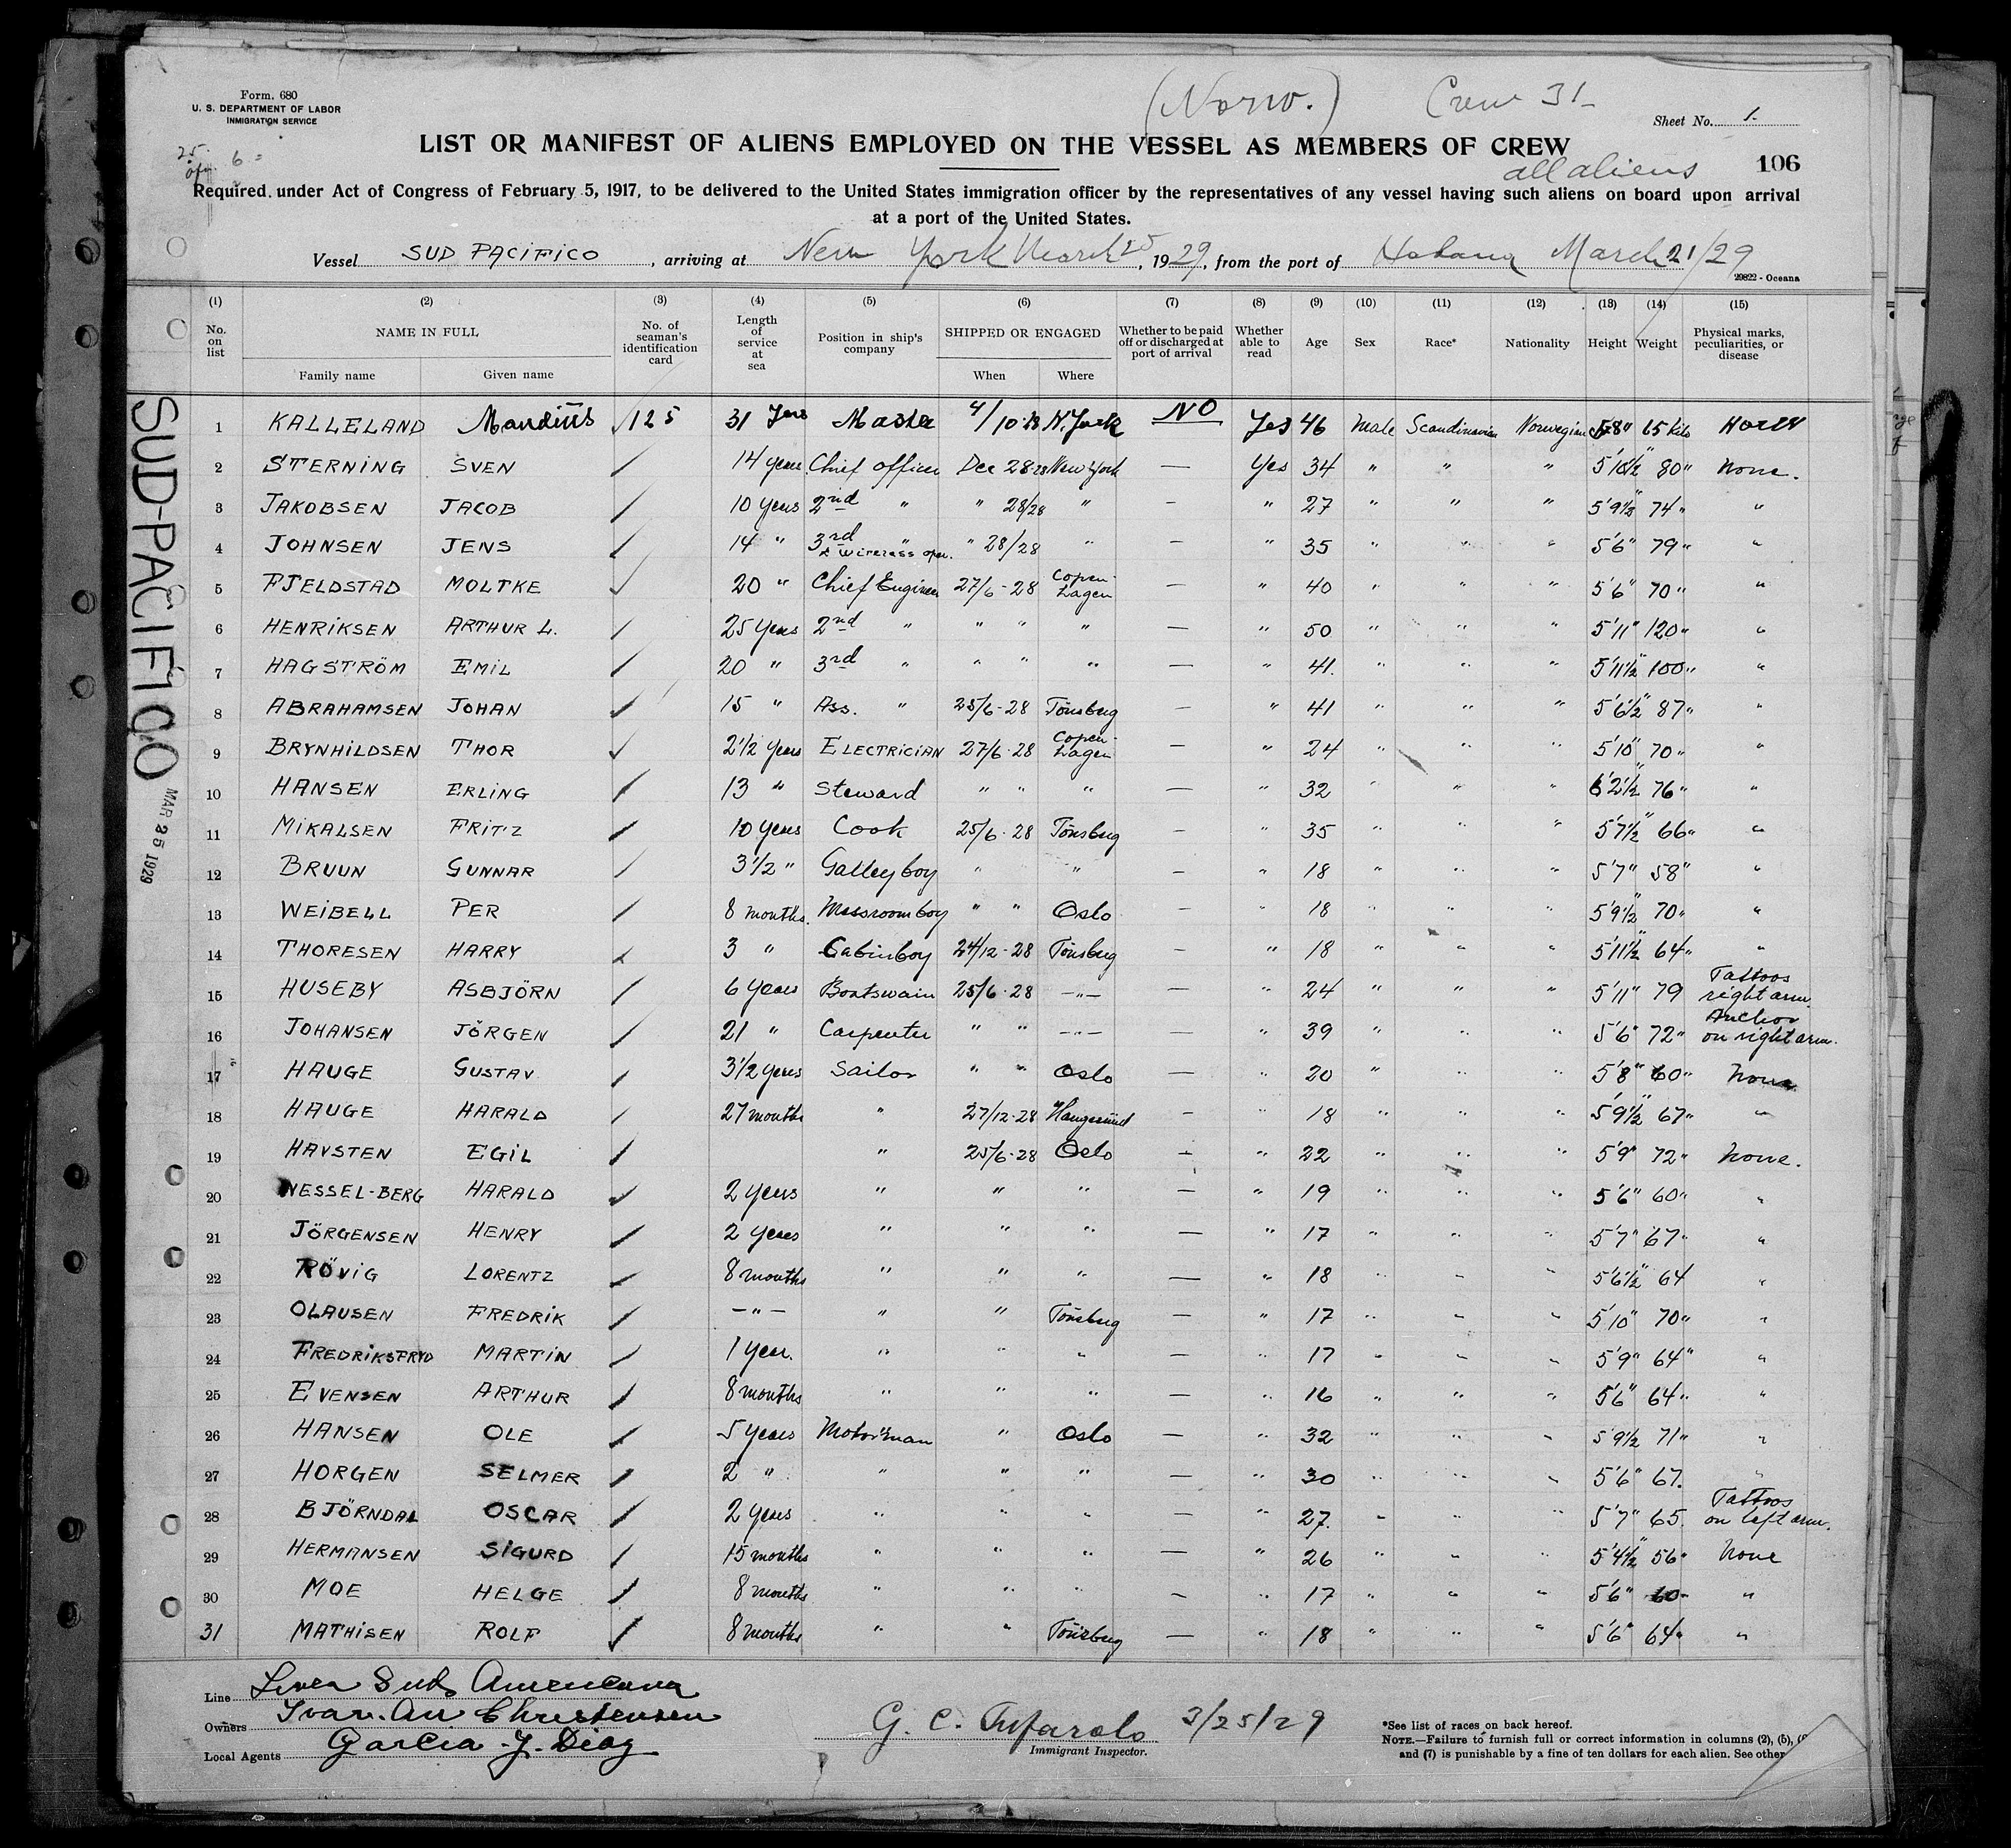 Form. 680
U. S. DEPARTMENT OF LABOR
INMIGRATION SERVICE
(Norw.) Crew 31-
Sheet No. 1.
LIST OR MANIFEST OF ALIENS EMPLOYED ON THE VESSEL AS MEMBERS OF CREW
all aliens 106
Required under Act of Congress of February 5, 1917, to be delivered to the United States immigration officer by the representatives of any vessel having such aliens on board upon arrival
at a port of the United States.
Vessel SUD PACIFICO, arriving at New York March 25, 1929, from the port of Habana March 21/29
29822 - Oceana
(1) (2) (3) (4) (5) (6) (7) (8) (9) (10) (11) (12) (13) (14) (15)
No. on list NAME IN FULL No. of seaman's identification card Length of service at sea Position in ship's company SHIPPED OR ENGAGED Whether to be paid off or discharged at port of arrival Whether able to read Age Sex Race* Nationality Height Weight Physical marks, peculiarities, or disease
Family name Given name When Where
SUD-PACIFICO
MAR 25 1929
1 KALLELAND 125 31 Master N. York NO Yes 46 Male Scandinavian Norwegian 5'8" 65 kilo
2 STERNING SVEN 14 years Chief officer Dec 28-28 New York — Yes 34 " " " 5'10½" 80" None.
3 JAKOBSEN JACOB 10 years 2nd " " 28/28 " — " 27 " " " 5'9½" 74" "
4 JOHNSEN JENS 14 " 3rd " & Wireless oper. " 28/28 " — " 35 " " " 5'6" 79" "
5 FJELDSTAD MOLTKE 20 " Chief Engineer 27/6-28 Copenhagen — " 40 " " " 5'6" 70" "
6 HENRIKSEN ARTHUR L. 25 years 2nd " " " " — " 50 " " " 5'11" 120" "
7 HAGSTRÖM EMIL 20 " 3rd " " " " — " 41. " " " 5'11½" 100" "
8 ABRAHAMSEN JOHAN 15 " Ass. " 25/6-28 Tönsberg — " 41 " " " 5'6½" 87" "
9 BRYNHILDSEN THOR 2½ years ELECTRICIAN 27/6-28 Copenhagen — " 24 " " " 5'10" 70" "
10 HANSEN ERLING 13 " Steward " " " — " 32 " " " 6'2½" 76" "
11 MIKALSEN FRITZ 10 years Cook 25/6-28 Tönsberg — " 35 " " " 5'7½" 66" "
12 BRUUN GUNNAR 3½ " Galley boy " " — " 18 " " " 5'7" 58" "
13 WEIBELL PER 8 months. Messroom boy " " Oslo — " 18 " " " 5'9½" 70" "
14 THORESEN HARRY 3 " Cabinboy 24/12-28 Tönsberg — " 18 " " " 5'11½" 64" "
15 HUSEBY ASBJÖRN 6 years Boatswain 25/6-28 —"— — " 24 " " " 5'11" 79 Tattoos right arm.
16 JOHANSEN JÖRGEN 21 " Carpenter " " —"— — " 39 " " " 5'6" 72" Anchor on right arm.
17 HAUGE GUSTAV 3½ years Sailor " " Oslo — " 20 " " " 5'8" 60" None
18 HAUGE HARALD 27 months " 27/12-28 Haugesund — " 18 " " " 5'9½" 67" "
19 HAVSTEN EGIL " 25/6-28 Oslo — " 22 " " " 5'9" 72" None.
20 WESSEL-BERG HARALD 2 years " " " — " 19 " " " 5'6" 60" "
21 JÖRGENSEN HENRY 2 years " " " — " 17 " " " 5'7" 67" "
22 RÖVIG LORENTZ 8 months " " " — " 18 " " " 5'6½" 64 "
23 OLAUSEN FREDRIK —"— " " Tönsberg — " 17 " " " 5'10" 70" "
24 FREDRIKSFRYD MARTIN 1 year. " " " — " 17 " " " 5'9" 64" "
25 EVENSEN ARTHUR 8 months " " " — " 16 " " " 5'6" 64" "
26 HANSEN OLE 5 years Motorman " Oslo — " 32 " " " 5'9½ 71" "
27 HORGEN SELMER 2 " " " " — " 30 " " " 5'6" 67. "
28 BJÖRNDAL OSCAR 2 years " " " — " 27. " " " 5'7" 65. Tattoos on left arm.
29 HERMANSEN SIGURD 15 months " " " — " 26 " " " 5'4½" 56" None
30 MOE HELGE 8 months " " " — " 17 " " " 5'6" 60 "
31 MATHISEN ROLF 8 months " " Tönsberg — " 18 " " " 5'6" 64" "
Line Linea Sud Americana
Owners Ivar. An Christensen
Local Agents Garcia y. Diaz
G. C. 3/25/29
Immigrant Inspector.
*See list of races on back hereof.
NOTE.—Failure to furnish full or correct information in columns (2), (5),
and (7) is punishable by a fine of ten dollars for each alien. See other